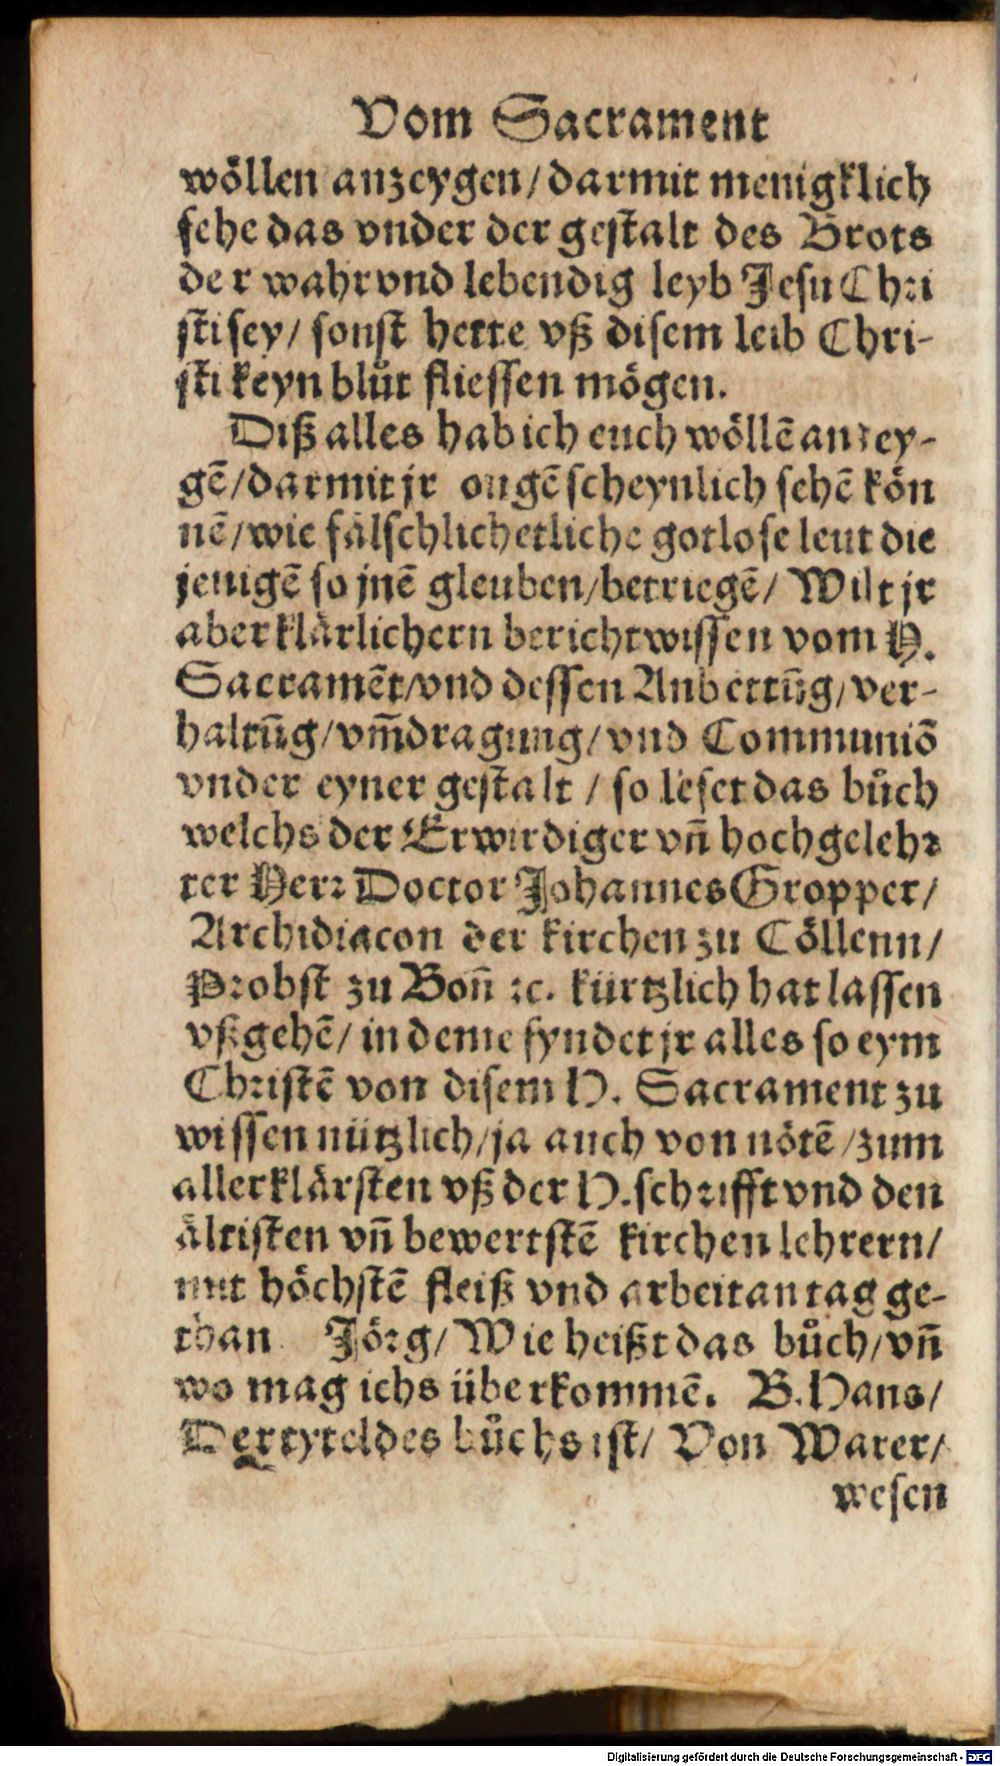 Vom Sacrament
wöllen anzeygen/darmit menigklich
sehe das vnder der gestalt des Brots
der wahr vnd lebendig leyb Jesu Chri
sti sey/ sonst hette vß disem leib Chri-
sti keyn blůt fliessen mögen.
Diß alles hab ich euch wöllē anzey-
gē/darmit jr ougēscheynlich sehē kön
nē/wie fälschlich etliche gotlose leut die
jenigē so jnē gleuben/betriegē/ Wilt jr
aber klärlichern bericht wissen vom H.
Sacramēt/vnd dessen Anbettūg/ver-
haltūg/vm̄dragung/vnd Communiō
vnder eyner gestalt / so leset das bůch
welchs der Erwirdiger vn̄ hochgelehr
ter Herr Doctor Johannes Gropper/
Archidiacon der kirchen zu Cöllenn/
Probst zu Bon̄ ꝛc. kürtzlich hat lassen
vßgehē/ in deme fyndet jr alles so eym
Christē von disem H. Sacrament zu
wissen nützlich/ja auch von nötē /zum
allerklärsten vß der H.schrifft vnd den
ältisten vn̄ bewertstē kirchen lehrern/
mit höchstē fleiß vnd arbeit an tag ge-
than Jörg/ Wie heißt das bůch/vn̄
wo mag ichs überkommē. B.Hans/
Der tytel des bůchs ist/ Von Warer/
wesen
Digitalisierung gefördert durch die Deutsche Forschungsgemeinschaft - DFG